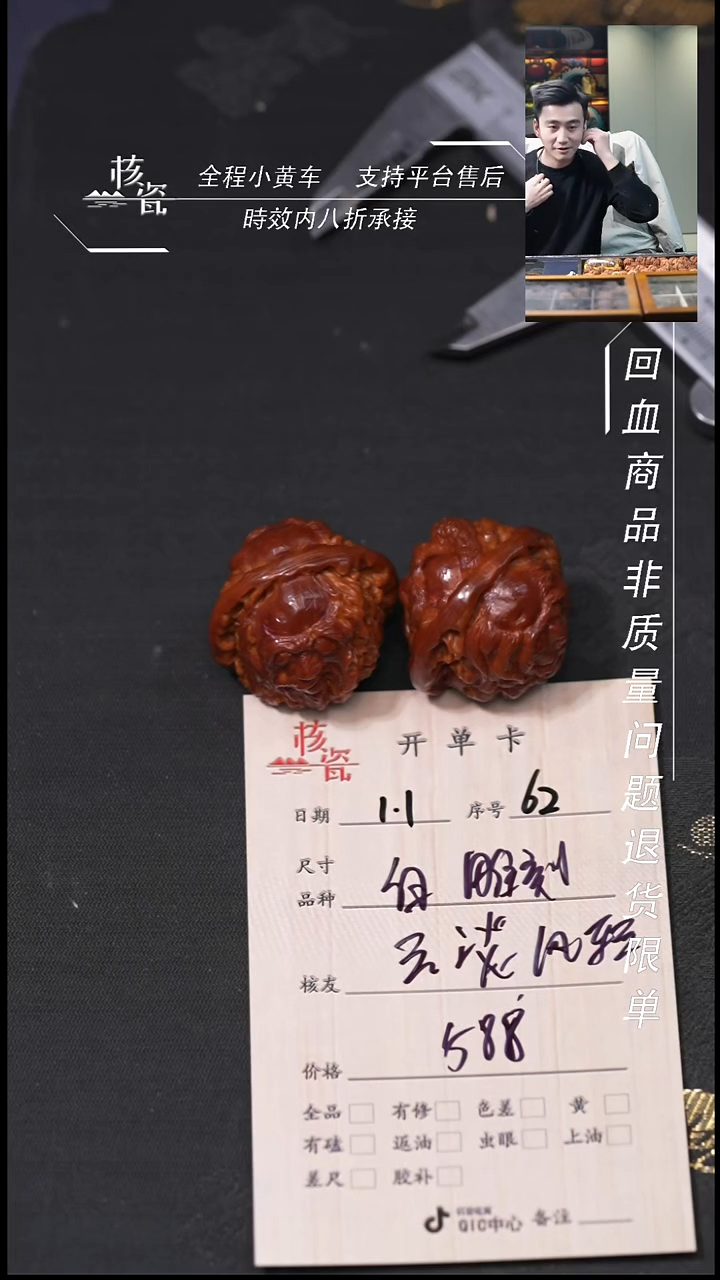 核瓷
全程小黄车 支持平台售后
時效内八折承接
回血商品非质量问题退货限单
核瓷
开单卡
日期 1.1 序号 62
尺寸
品种 雕刻
核友 云淡风轻
价格 588
全品 有修 色差 黄
有磕 返油 虫眼 上油
差尺 胶补
QIC中心 备注